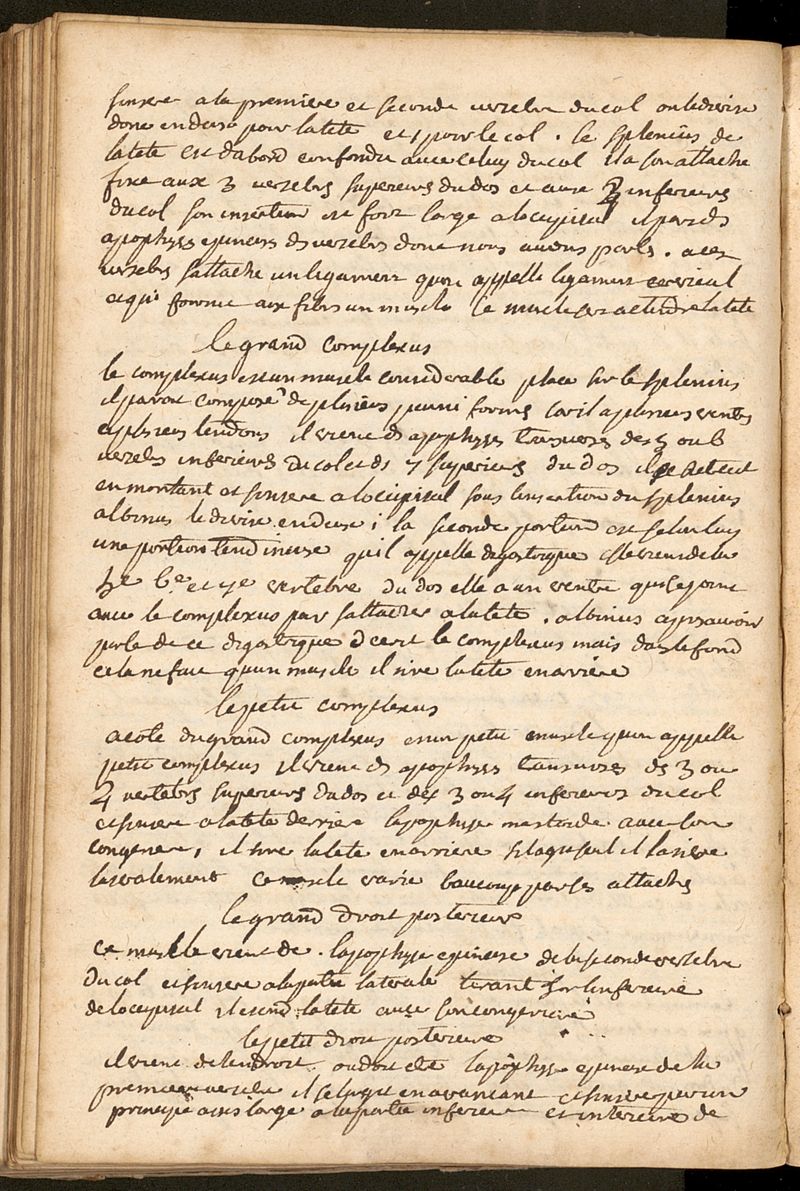 sinsere a la premiere et seconde vertebre du col on le divise
donc en deux pour la tete et 1 pour le col . le splenius de
la tete est dabord confondu avec celuy du col il a son attache
fixe aux 3 vertebres superieures du dos et aux 3 inferieures
du col son insertion est fort large a loccipital il part des
apophyses epineuses des vertebres donc nous avons parlé . a ces
vertebres sattache un ligament quon appelle ligament cervical
et qui fournit aux fibres un muscle ce muscle sert a etendre la tete
le grand complexus
le complexus est un muscle considerable placé sur le splenius
il paroit composé de plusieurs parmi formes car il a plusieurs ventres
et plusieurs tendons il vient des apophyses transverses des 5 ou 6
vertebres inferieures du col et des 7 superieures du dos il se retrecit
en montant et sinsere a loccipital sous linsertion du splenius
albinus le divise en deux ; la seconde portion est selon luy
une portion tendineuse quil appelle digastrique elle vient de la
5e 6e et 7e vertebre du dos elle a un ventre qui se joint
avec le complexus pour sattacher a la tete . albinus apres avoir
parlé de ce digastrique decrit le complexus mais dans le fond
cela ne fait quun muscle il tire la tete en arriere
le petit complexus
a coté du grand complexus est un petit muscle quon appelle
petit complexus il vient des apophyses transverses des 3 ou
4 vertebres superieures du dos et des 3 ou 4 inferieures du col
et sinsere a la tete derriere lapophyse mastoide avec son
congenere , il tire la tete en arriere sil agit seul il la tire
lateralement ce muscle varie beaucoup par ses attaches
le grand droit posterieur
ce muscle vient de lapophyse epineuse de la seconde vertebre
du col et sinsere a la partie laterale tirant sur linferieure
de loccipital il etend la tete avec son congenere
le petit droit posterieur
il vient de lendroit ou doit etre lapophyse epineuse de la
premiere vertebre il selargit en avancant et sinsere par un
principe assez large a la partie inferieure et interieure de